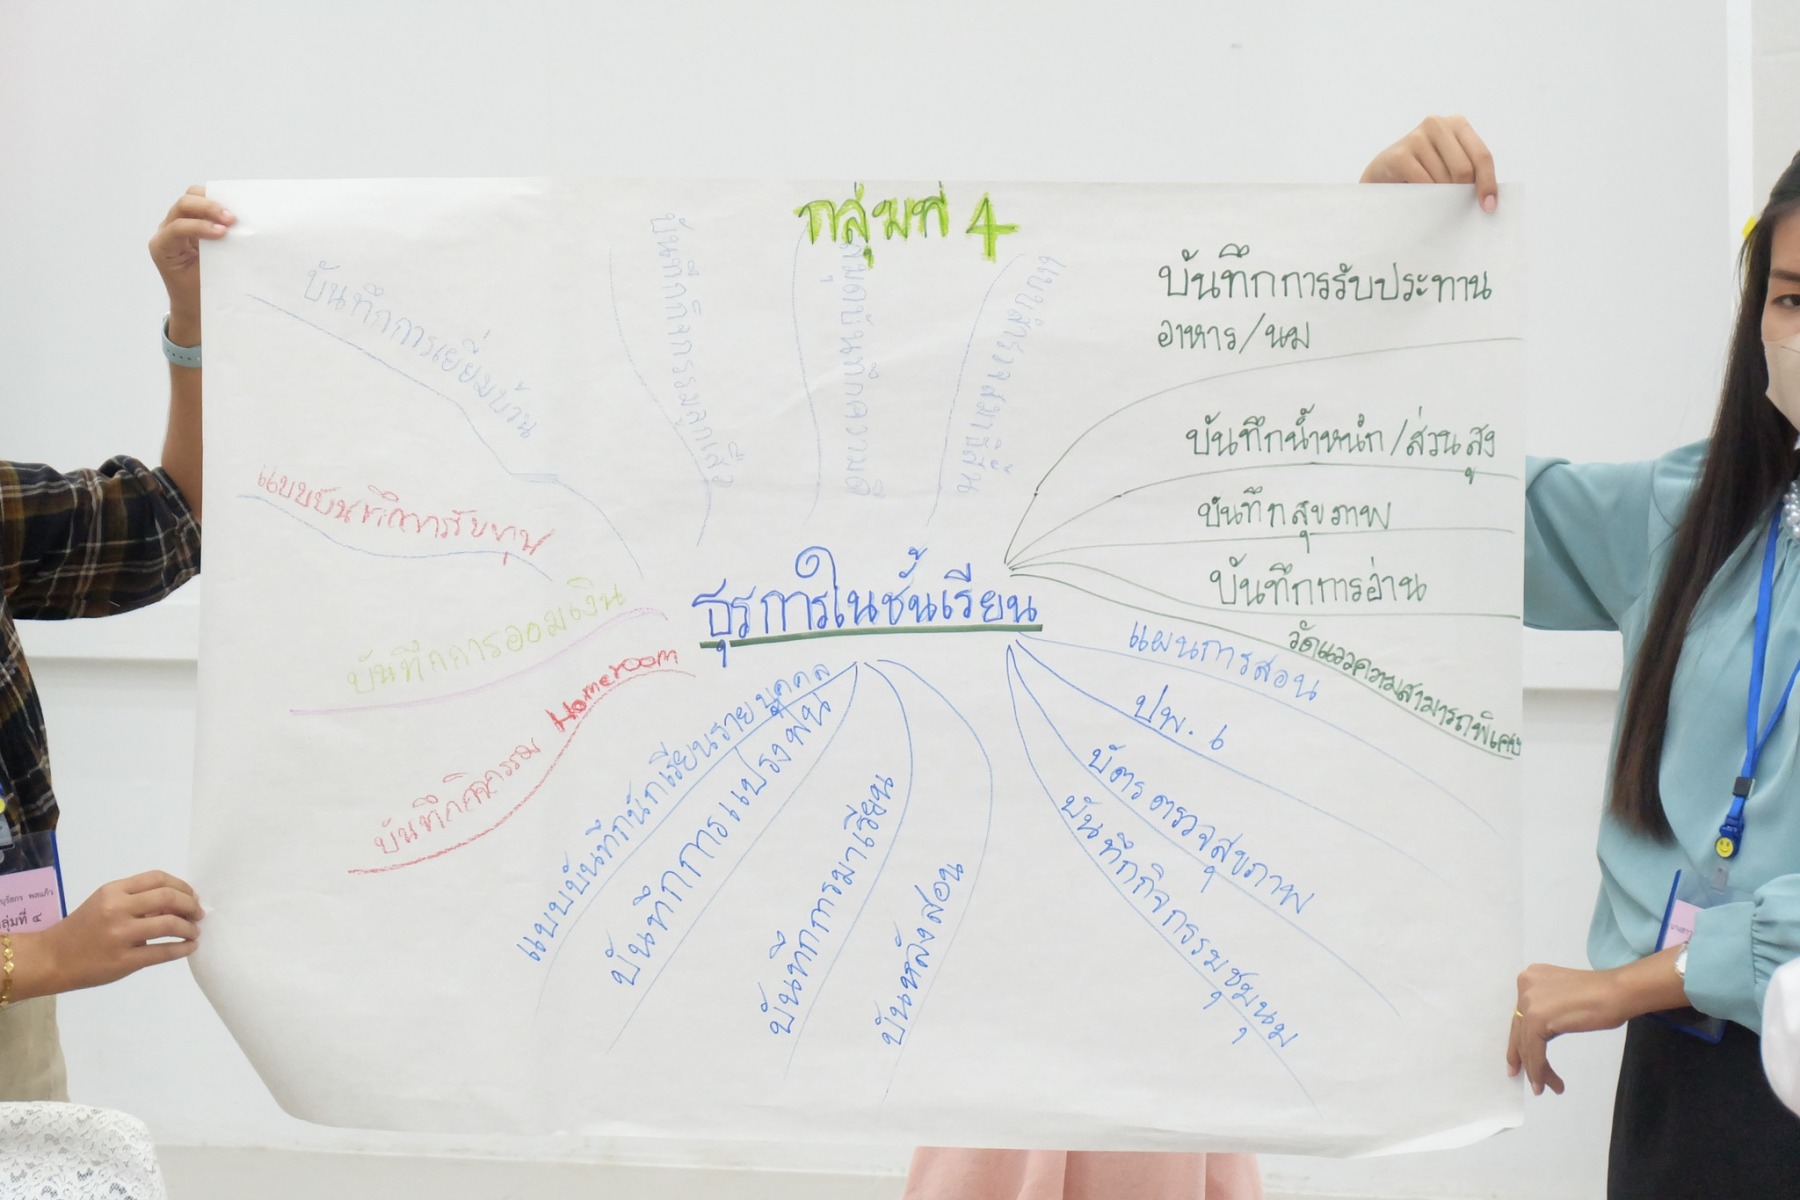 กลุ่มที่ 4
ธุรการในชั้นเรียน
บันทึกการรับประทาน
อาหาร/นม
บันทึกน้ำหนัก/ส่วนสูง
บันทึกสุขภาพ
บันทึกการอ่าน
วัดแววความสามารถพิเศษ
แผนการสอน
ปพ. 6
บัตรตรวจสุขภาพ
บันทึกกิจกรรมชุมนุม
บันหลังสอน
บันทึกการมาเรียน
บันทึกการแปรงฟัน
แบบบันทึกนักเรียนรายบุคคล
บันทึกกิจกรรม Homeroom
บันทึกการออมเงิน
แบบบันทึกการรับทุน
บันทึกการเยี่ยมบ้าน
บันทึกกิจกรรมลูกเสือ
สมุดบันทึกความดี
ลุ่มที่ ๔